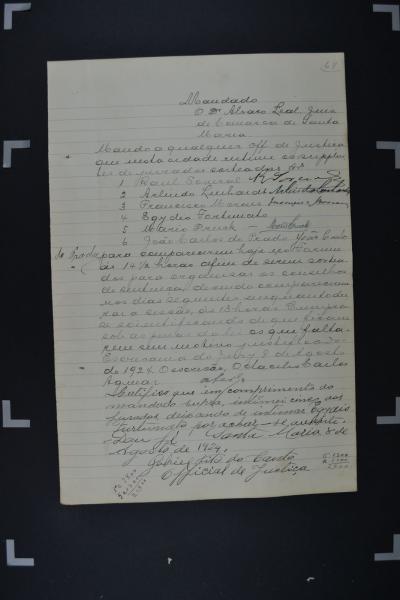 68
Mandado
O Dr Alvaro Leal Juiz
de Comarca de Santa
Maria
Mando a qualquer off. de Justiça
que nesta cidade intime os supplen
tes de jurados sorteados Srs
1 Raul
2 Arlindo Linhardt
3 Francisco Moraes
4 Egydio Fortunato
5 Mario
6 João Carlos do Prado João Carlos
do Prado para comparecerem hoje no Forum
ás 14 1/2 horas afim de serem sorteia
dos para organisar os conselhos
de sentença, devendo comparecerem
nos dias seguintes em quanto du
rar a sessão, ás 13 horas. Cumpra
se scientificando de que ficam
sob as penas da lei os que falta
rem sem motivo justificado.
Escrivania do Jury, 8 de Agosto
de 1924. O escrivão, Octacilio Carlos
Aguiar
Certifico que em comprimento do
mandado supra, intimei cinco dos
jurados, deixando de intimar Egydio
Fortunato por achar-se ausente.
Dou fé. Santa Maria 8 de
Agosto de 1924.
do Couto
Official de Justiça